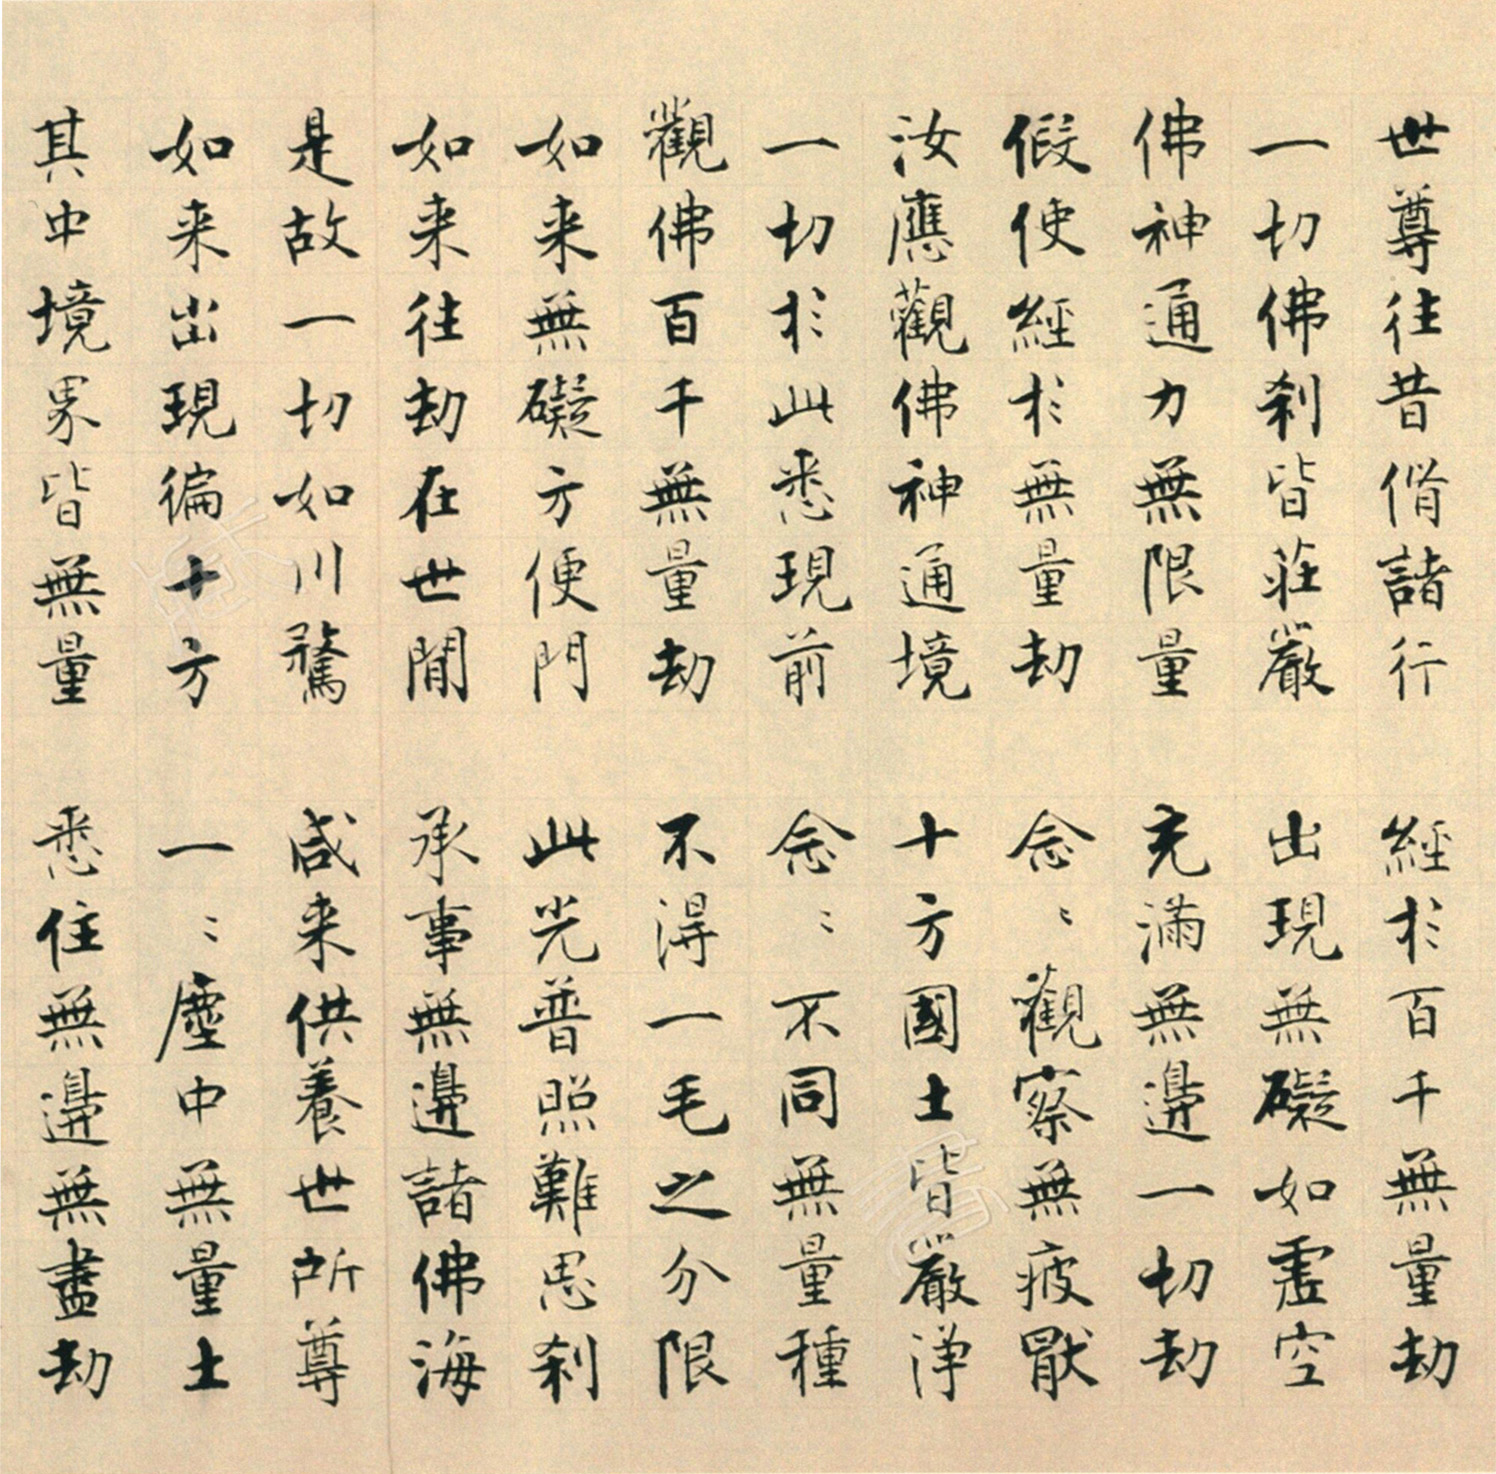 世尊往昔脩諸行 經於百千無量劫
一切佛刹皆莊嚴 出現無礙如虛空
佛神通力無限量 充滿無邊一切劫
假使經於無量劫 念〻觀察無疲厭
汝應觀佛神通境 十方國土皆嚴淨
一切於此悉現前 念〻不同無量種
觀佛百千無量劫 不得一毛之分限
如来無礙方便門 此光普照難思刹
如来往劫在世間 承事無邊諸佛海
是故一切如川騖 咸来供養世所尊
如来出現徧十方 一〻塵中無量土
其中境界皆無量 悉住無邊無盡劫